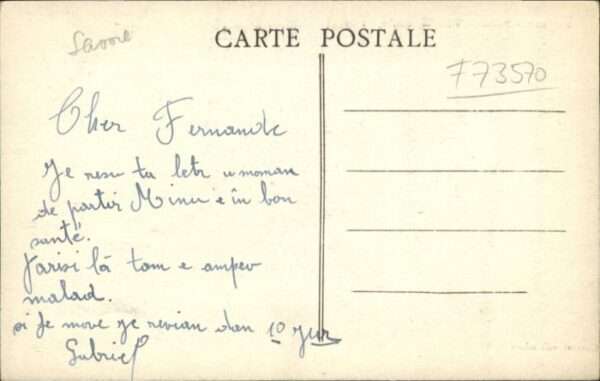 Savoie
CARTE POSTALE
F73570
Cher Fernande
Je resu ta letr u moman
de partir Minu e în bon
santé.
Jarisi là tom e ampev
malad.
si Je move je revian dan 10 jur
Gabriel